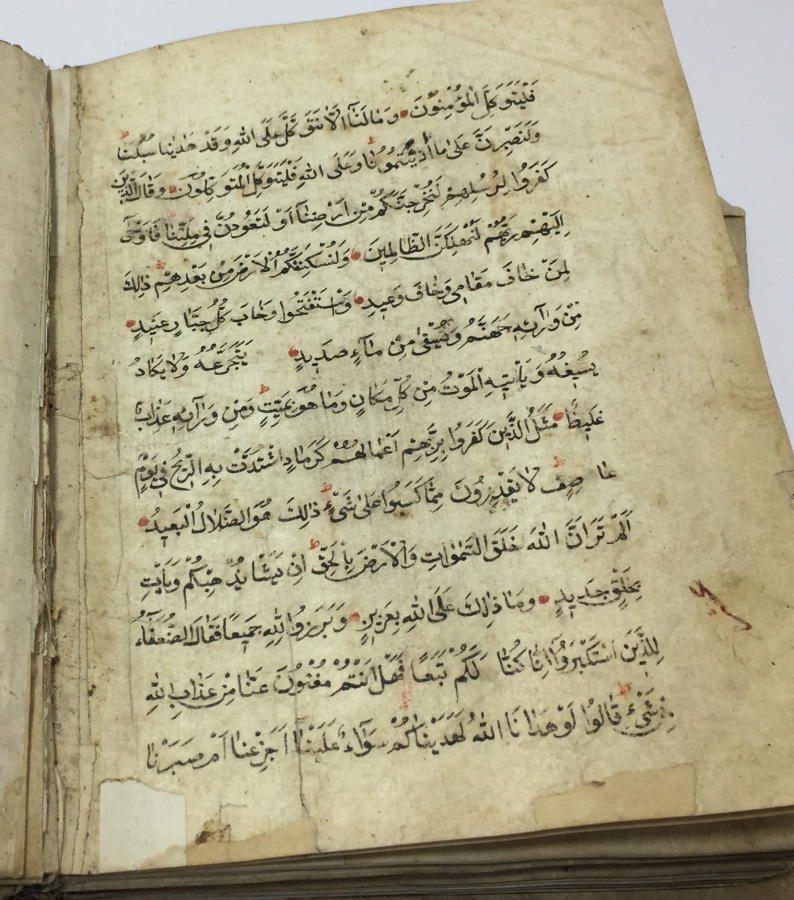 فَلْيَتَوَكَّلِ الْمُؤْمِنُونَ وَمَا لَنَا اَلَّا نَتَوَكَّلَ عَلَى اللهِ وَقَدْ هَدٰينَا سُبُلَنَا
وَلَنَصْبِرَنَّ عَلٰى مَا اٰذَيْتُمُونَا وَعَلَى اللهِ فَلْيَتَوَكَّلِ الْمُتَوَكِّلُونَ وَقَالَ الَّذِينَ
كَفَرُوا لِرُسُلِهِمْ لَنُخْرِجَنَّكُمْ مِنْ اَرْضِنَا اَوْ لَتَعُودُنَّ فِي مِلَّتِنَا فَاَوْحٰى
اِلَيْهِمْ رَبُّهُمْ لَنُهْلِكَنَّ الظَّالِمِينَ وَلَنُسْكِنَنَّكُمُ الْاَرْضَ مِنْ بَعْدِهِمْ ذٰلِكَ
لِمَنْ خَافَ مَقَامِي وَخَافَ وَعِيدِ وَاسْتَفْتَحُوا وَخَابَ كُلُّ جَبَّارٍ عَنِيدٍ
مِنْ وَرَآئِهِ جَهَنَّمُ وَيُسْقٰى مِنْ مَآءٍ صَدِيدٍ يَتَجَرَّعُهُ وَلَا يَكَادُ
يُسِيغُهُ وَيَأْتِيهِ الْمَوْتُ مِنْ كُلِّ مَكَانٍ وَمَا هُوَ بِمَيِّتٍ وَمِنْ وَرَآئِهِ عَذَابٌ
غَلِيظٌ مَثَلُ الَّذِينَ كَفَرُوا بِرَبِّهِمْ اَعْمَالُهُمْ كَرَمَادٍ اشْتَدَّتْ بِهِ الرِّيحُ فِي يَوْمٍ
عَاصِفٍ لَا يَقْدِرُونَ مِمَّا كَسَبُوا عَلٰى شَيْءٍ ذٰلِكَ هُوَ الضَّلَالُ الْبَعِيدُ
اَلَمْ تَرَ اَنَّ اللهَ خَلَقَ السَّمٰوَاتِ وَالْاَرْضَ بِالْحَقِّ اِنْ يَشَأْ يُذْهِبْكُمْ وَيَأْتِ
بِخَلْقٍ جَدِيدٍ وَمَا ذٰلِكَ عَلَى اللهِ بِعَزِيزٍ وَبَرَزُوا لِلّٰهِ جَمِيعًا فَقَالَ الضُّعَفَاءُ
لِلَّذِينَ اسْتَكْبَرُوا اِنَّا كُنَّا لَكُمْ تَبَعًا فَهَلْ اَنْتُمْ مُغْنُونَ عَنَّا مِنْ عَذَابِ اللهِ
مِنْ شَيْءٍ قَالُوا لَوْ هَدٰانَا اللهُ لَهَدَيْنَاكُمْ سَوَآءٌ عَلَيْنَا اَجَزِعْنَا اَمْ صَبَرْنَا